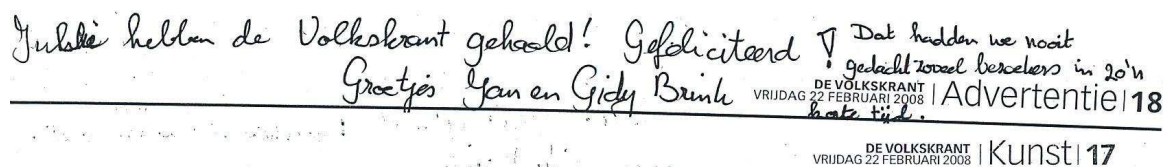 Jullie hebben de Volkskrant gehaald! Gefeliciteerd! Dat hadden we nooit
gedacht zoveel bezoekers in zo'n
Groetjes Jan en Gidy Brink
DE VOLKSKRANT
VRIJDAG 22 FEBRUARI 2008 | Advertentie | 18
korte tijd.
DE VOLKSKRANT
VRIJDAG 22 FEBRUARI 2008 | Kunst | 17